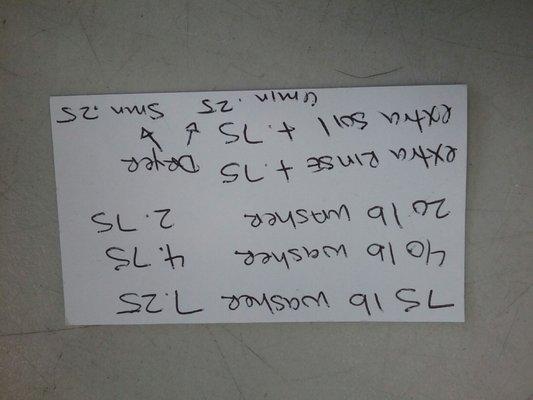 75 lb washer 7.25
40 lb washer 4.75
20 lb washer 2.75
extra Rinse + .75 Dryer
extra soil + .75
6min .25 5min .25